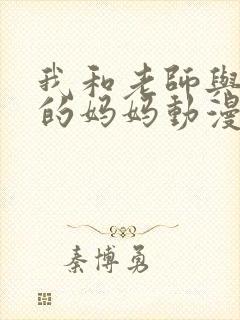 我和老師與
的妈妈動漫
秦博勇